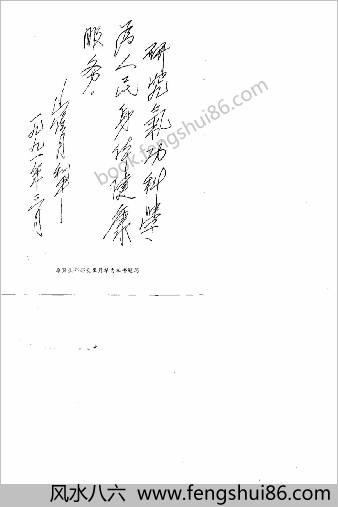 研究氣功科學、
為人民身体健康
服务。
一九九一年三月
book.fengshui86.com
风水八六 www.fengshui86.com